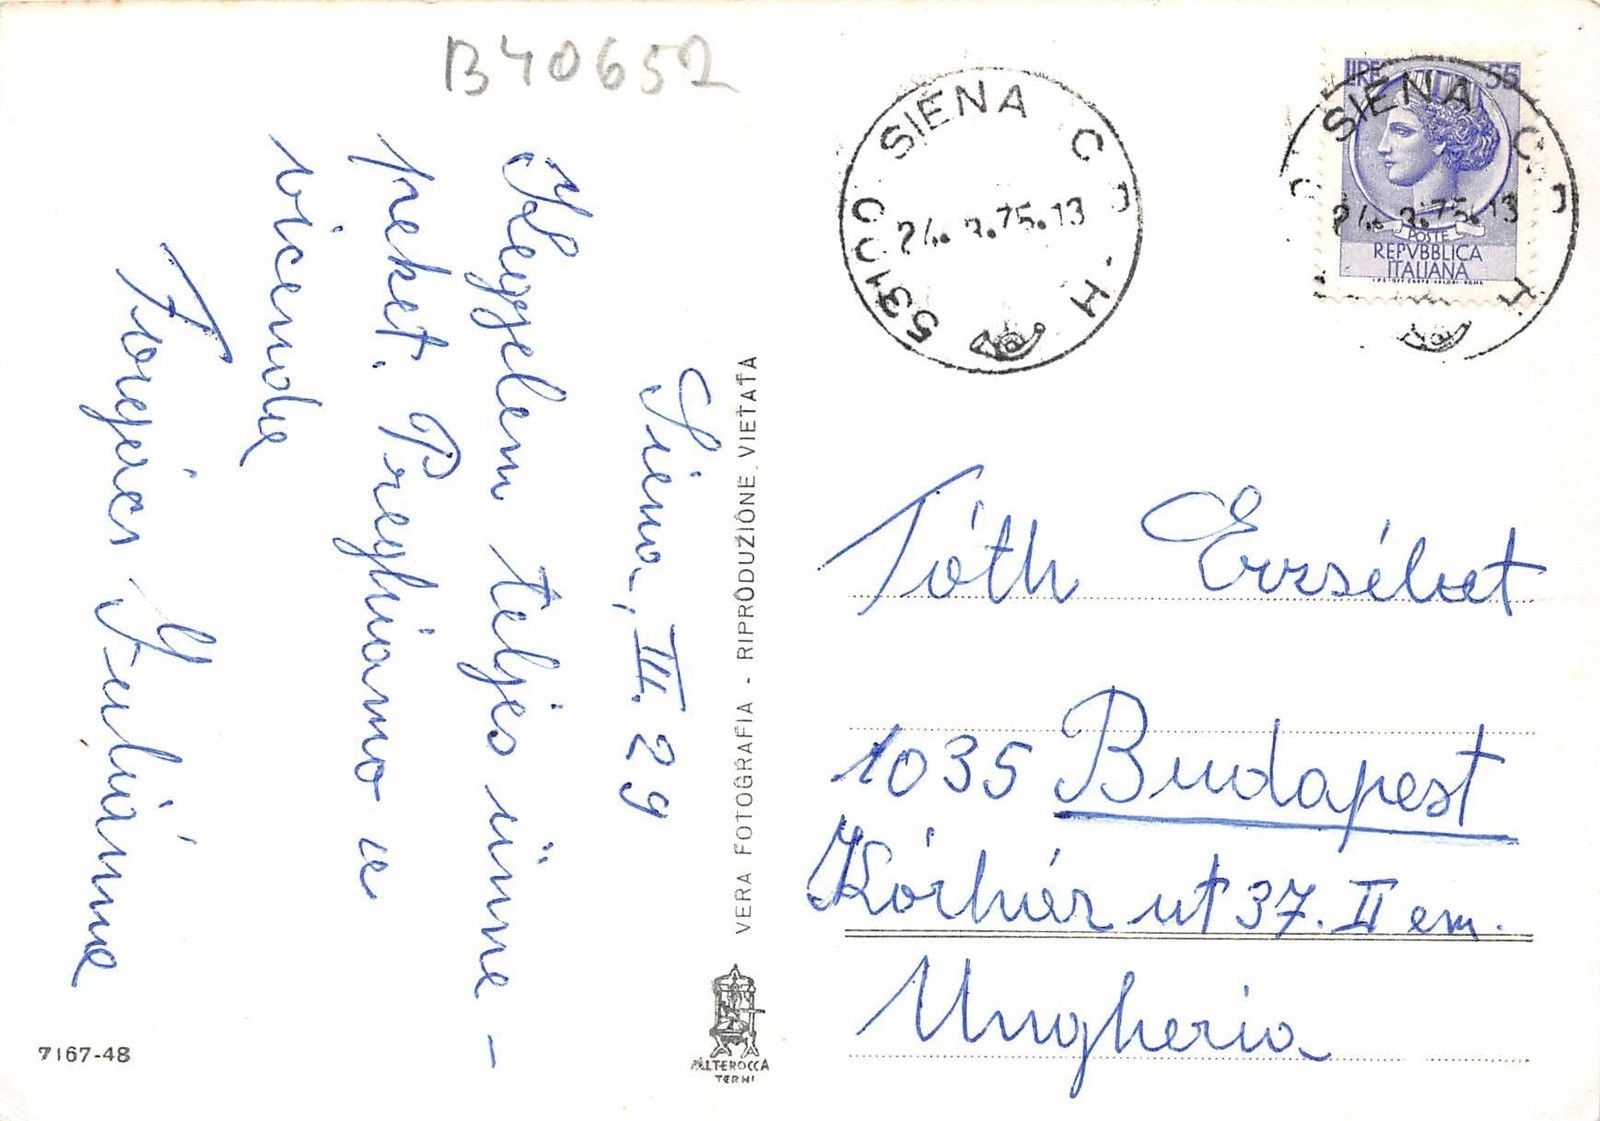 B40652
Siena, III. 29
Kegyelem teljes ünne-
peket. Preghiamo a
vicenda
Forgács Gyulánné
VERA FOTOGRAFIA - RIPRODUZIONE VIETATA
ALTEROCCA
TERNI
7167-48
SIENA C.P.-H
53100
24.3.75.13
LIRE 55
POSTE
REPVBBLICA
ITALIANA
SIENA C.P. H
24.3.75.13
Tóth Erzsébet
1035 Budapest
Kórház ut 37. II em.
Ungheria